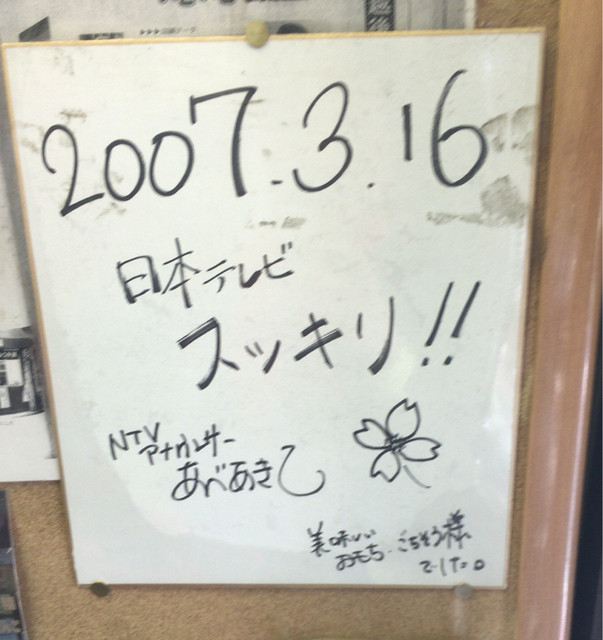 2007.3.16
日本テレビ
スッキリ!!
NTV
アナウンサー
あべあきし
美味しい
おもち ごちそう様
でした。